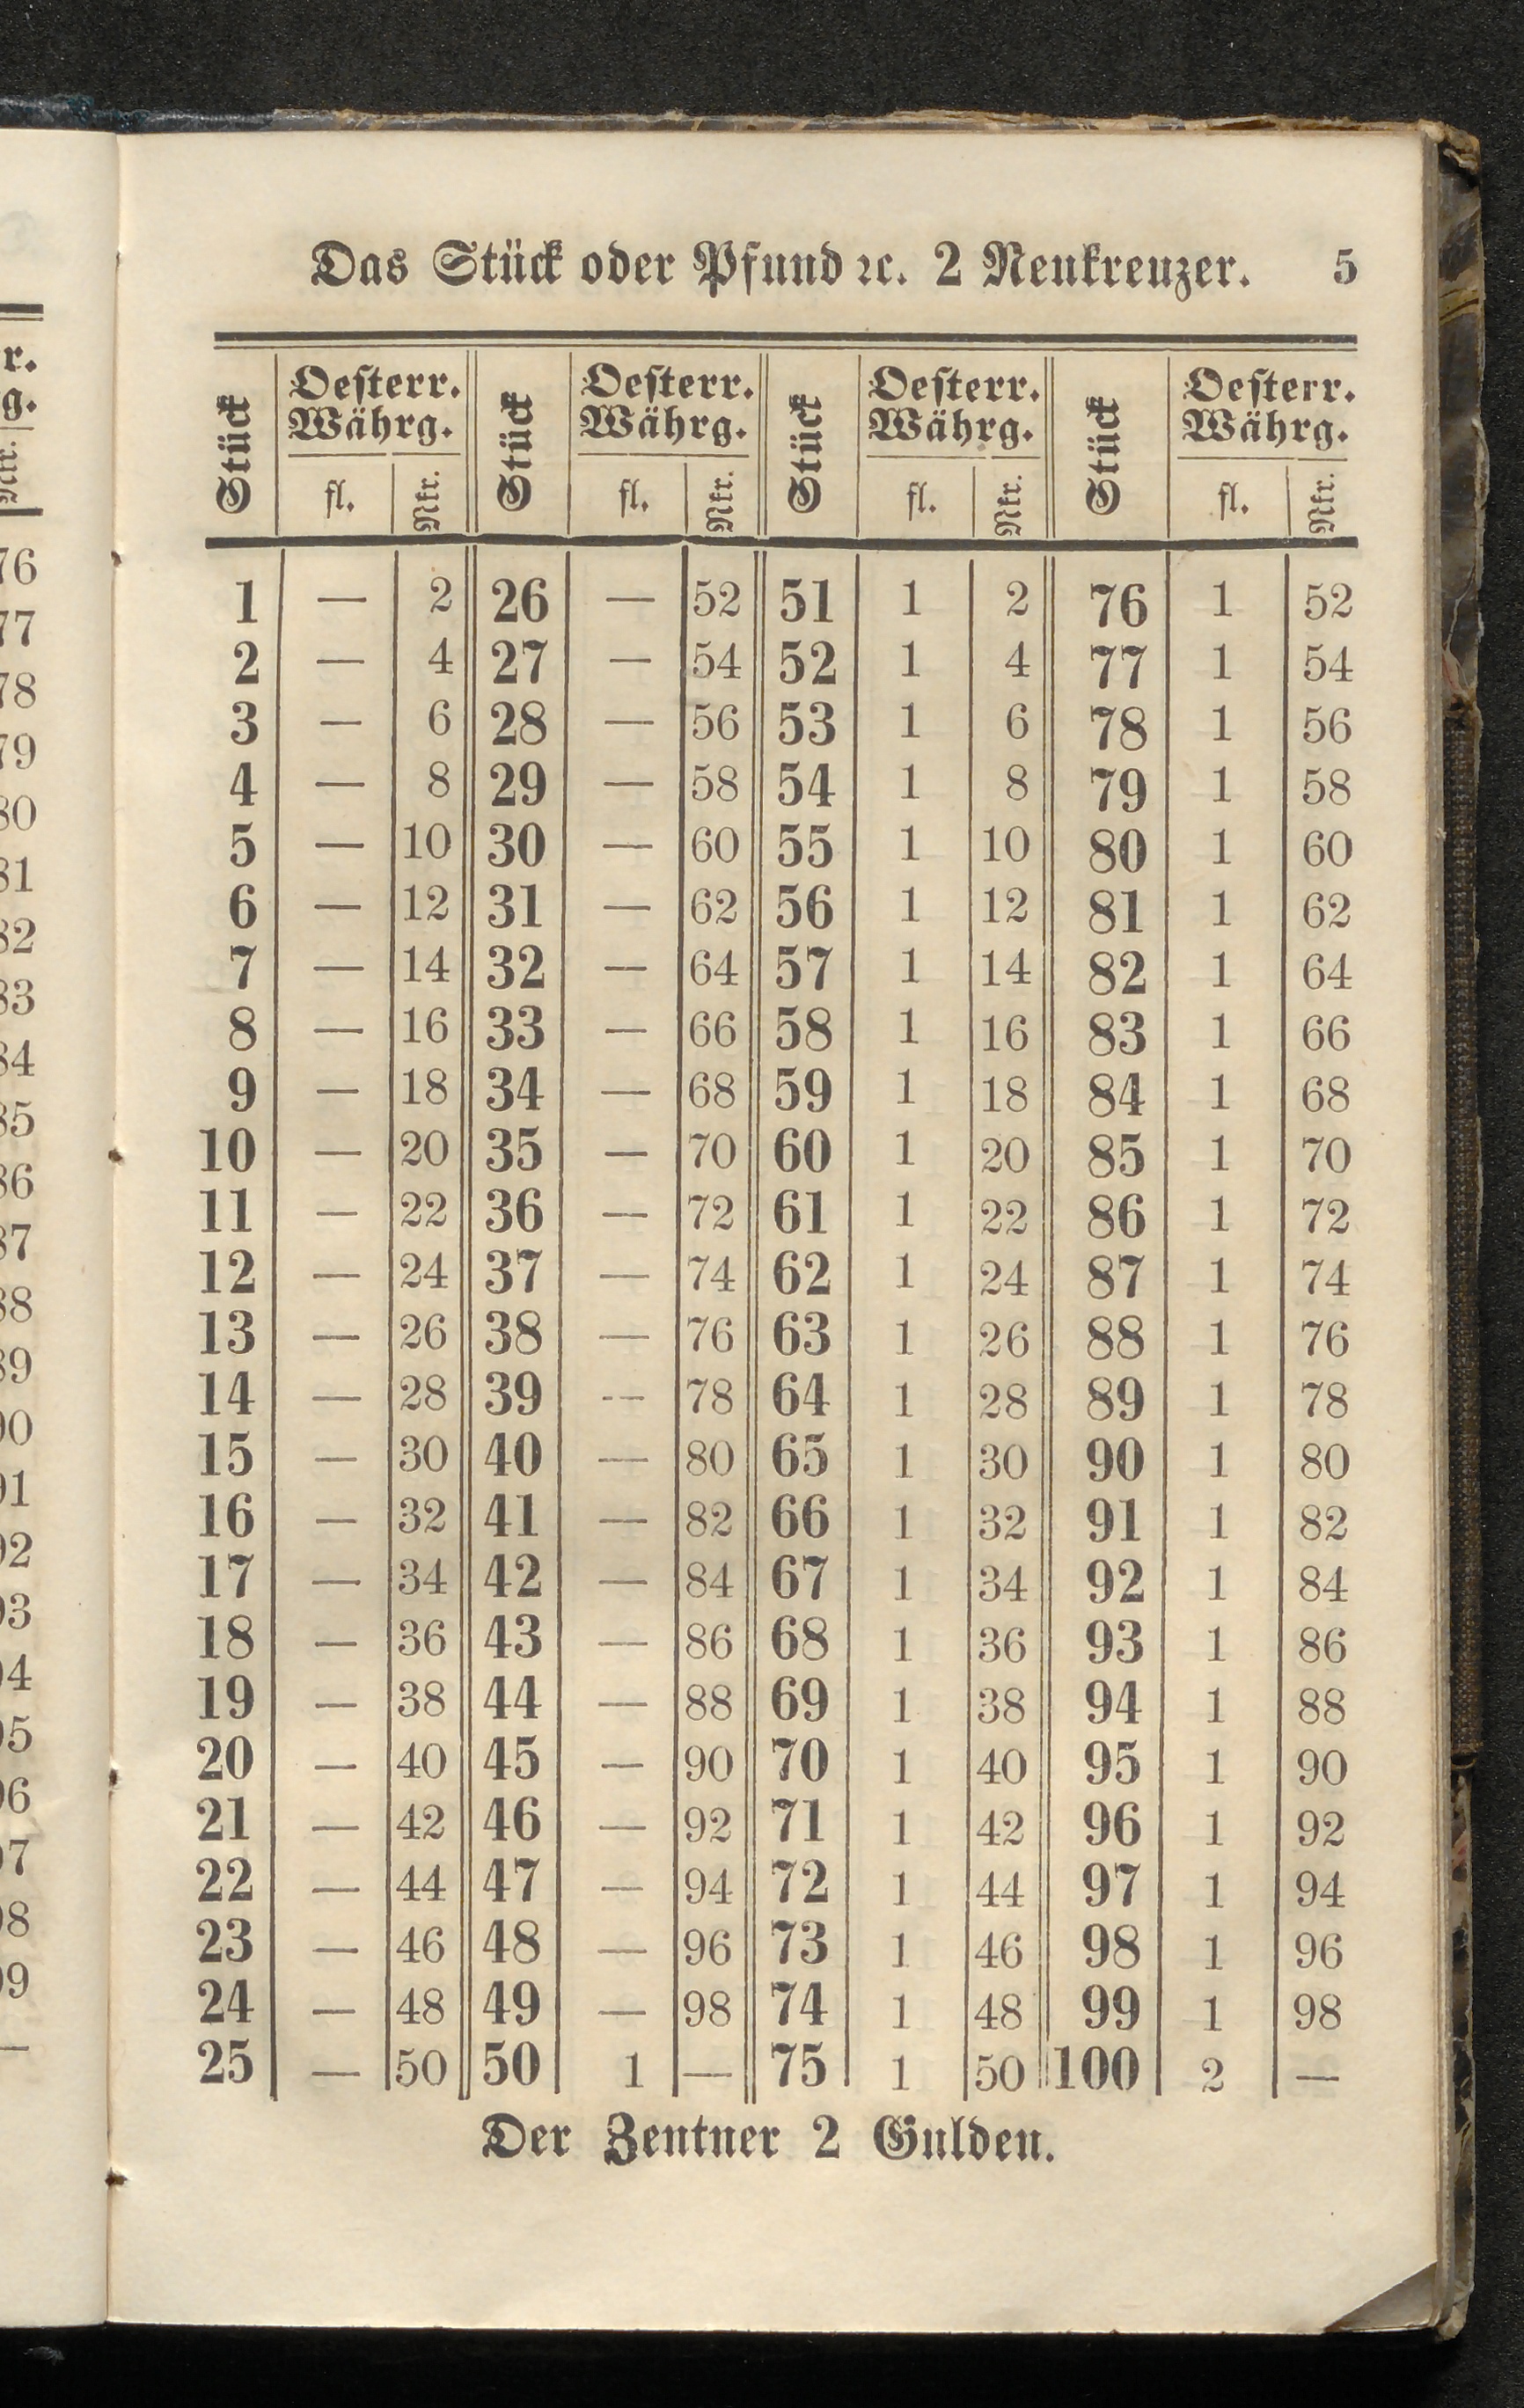 Das Stück oder Pfund ꝛc. 2 Neukreuzer. 5
Stück Oesterr. Währg. Stück Oesterr. Währg. Stück Oesterr. Währg. Stück Oesterr. Währg.
fl. Nkr. fl. Nkr. fl. Nkr. fl. Nkr.
1 — 2 26 — 52 51 1 2 76 1 52
2 — 4 27 — 54 52 1 4 77 1 54
3 — 6 28 — 56 53 1 6 78 1 56
4 — 8 29 — 58 54 1 8 79 1 58
5 — 10 30 — 60 55 1 10 80 1 60
6 — 12 31 — 62 56 1 12 81 1 62
7 — 14 32 — 64 57 1 14 82 1 64
8 — 16 33 — 66 58 1 16 83 1 66
9 — 18 34 — 68 59 1 18 84 1 68
10 — 20 35 — 70 60 1 20 85 1 70
11 — 22 36 — 72 61 1 22 86 1 72
12 — 24 37 — 74 62 1 24 87 1 74
13 — 26 38 — 76 63 1 26 88 1 76
14 — 28 39 — 78 64 1 28 89 1 78
15 — 30 40 — 80 65 1 30 90 1 80
16 — 32 41 — 82 66 1 32 91 1 82
17 — 34 42 — 84 67 1 34 92 1 84
18 — 36 43 — 86 68 1 36 93 1 86
19 — 38 44 — 88 69 1 38 94 1 88
20 — 40 45 — 90 70 1 40 95 1 90
21 — 42 46 — 92 71 1 42 96 1 92
22 — 44 47 — 94 72 1 44 97 1 94
23 — 46 48 — 96 73 1 46 98 1 96
24 — 48 49 — 98 74 1 48 99 1 98
25 — 50 50 1 — 75 1 50 100 2 —
Der Zentner 2 Gulden.